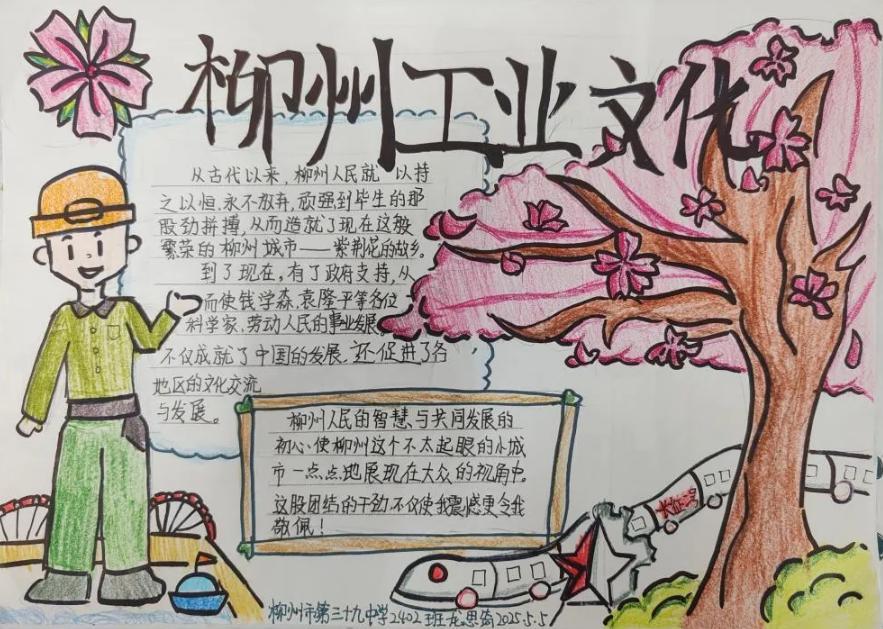 柳州工业文化
从古代以来，柳州人民就 以持
之以恒，永不放弃，顽强到毕生的那
股劲拼搏，从而造就了现在这般
繁荣的柳州城市——紫荆花的故乡。
到了现在，有了政府支持，从
而使钱学森，袁隆平等各位
科学家，劳动人民的事业发展。
不仅成就了中国的发展，还促进了各
地区的文化交流
与发展。
柳州人民的智慧，与共同发展的
初心，使柳州这个不太起眼的小城
市一点点地展现在大众的视角中。
这股团结的干劲不仅使我震感更令我
敬佩！
柳州市第三十九中学2402班龙思 2025.5.5